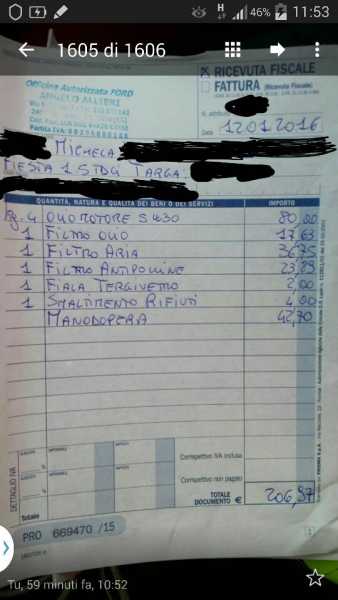 46% 11:53
1605 di 1606
Officina Autorizzata FORD
RICEVUTA FISCALE
FATTURA (Ricevuta Fiscale)
Data 12.01.2016
MICHELA
FIESTA 1.5TDCI TARGA:
QUANTITÀ, NATURA E QUALITÀ DEI BENI O DEI SERVIZI IMPORTO
Kg. 4 OLIO MOTORE 5W30 80,00
1 FILTRO OLIO 17,63
1 FILTRO ARIA 36,75
1 FILTRO ANTIPOLLINE 23,89
1 FIALA TERGIVETRO 2,00
1 SMALTIMENTO RIFIUTI 4,00
MANODOPERA 42,70
DETTAGLIO IVA
Corrispettivo IVA inclusa
Corrispettivo non pagato
Totale
TOTALE DOCUMENTO € 206,97
PRO 669470 /15
Tu, 59 minuti fa, 10:52